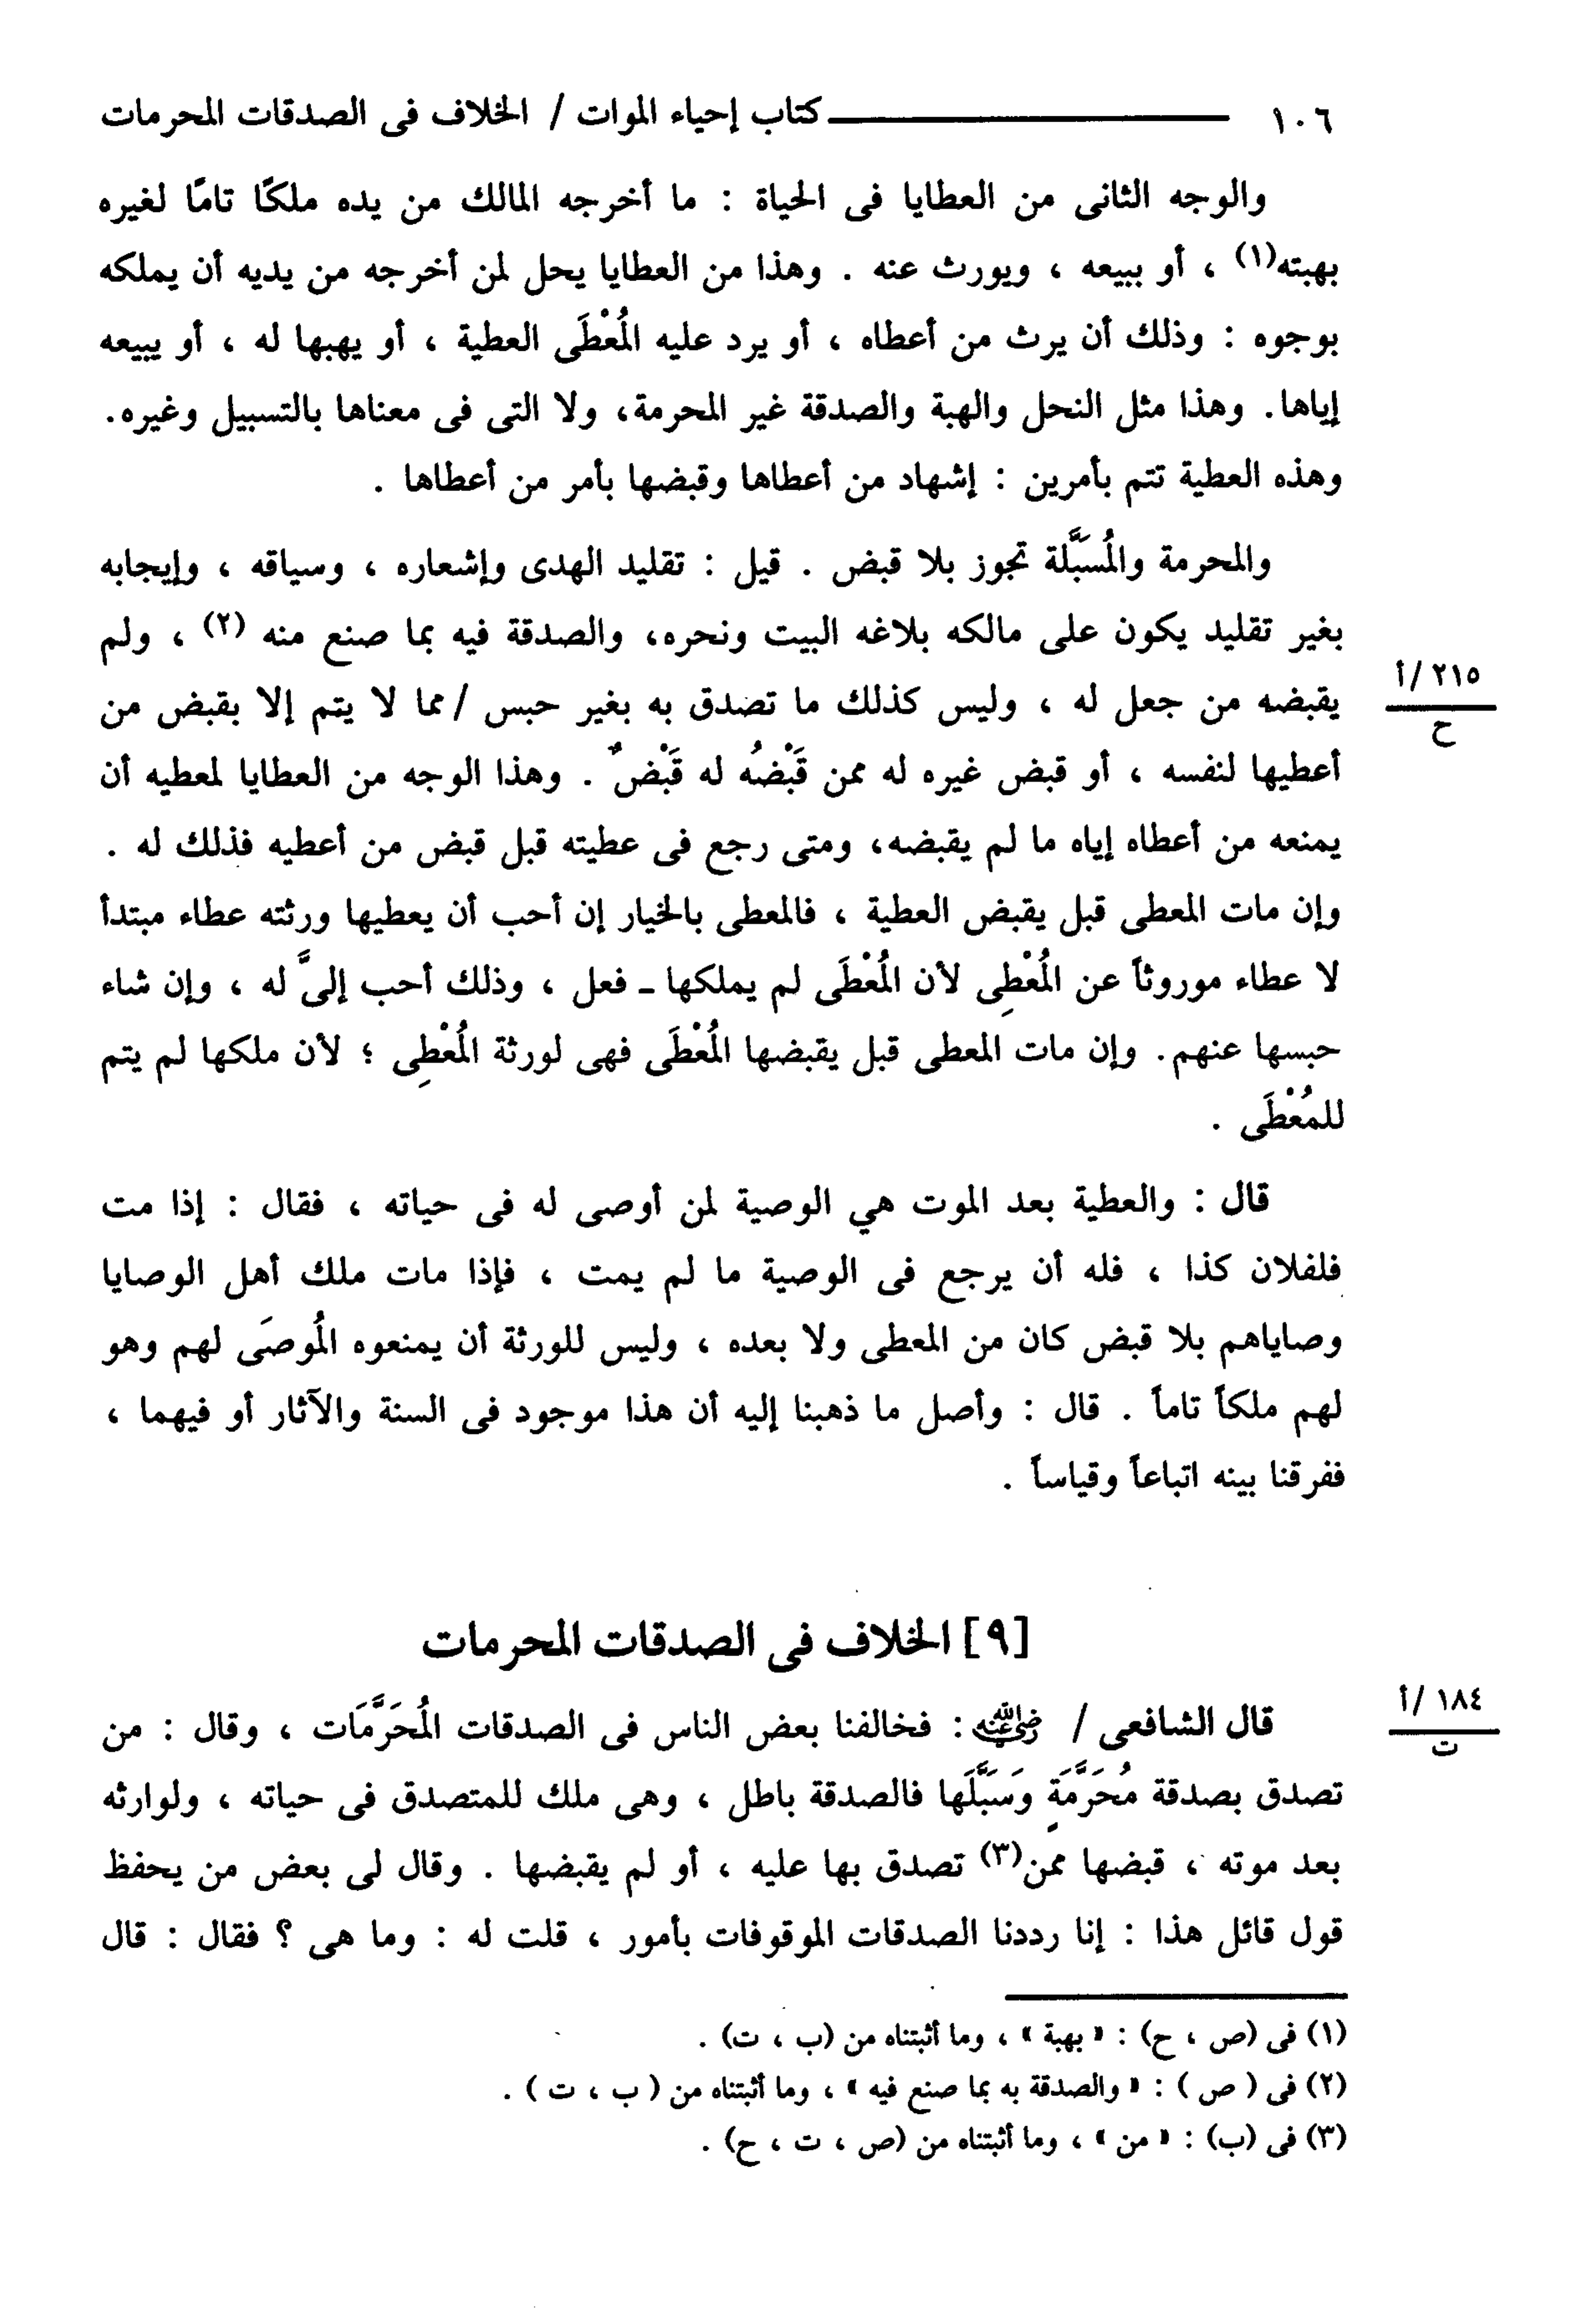 ١٠٦ كتاب إحياء الموات / الخلاف فى الصدقات المحرمات
والوجه الثانى من العطايا فى الحياة : ما أخرجه المالك من يده ملكًا تامًا لغيره
بهبته(١) ، أو ببيعه ، ويورث عنه . وهذا من العطايا يحل لمن أخرجه من يديه أن يملكه
بوجوه : وذلك أن يرث من أعطاه ، أو يرد عليه المُعْطَى العطية ، أو يهبها له ، أو يبيعه
إياها. وهذا مثل النحل والهبة والصدقة غير المحرمة، ولا التى فى معناها بالتسبيل وغيره.
وهذه العطية تتم بأمرين : إشهاد من أعطاها وقبضها بأمر من أعطاها .
والمحرمة والمُسَبَّلة تجوز بلا قبض . قيل : تقليد الهدى وإشعاره ، وسياقه ، وإيجابه
بغير تقليد يكون على مالكه بلاغه البيت ونحره، والصدقة فيه بما صنع منه (٢) ، ولم
٢١٥ /أ
ح
يقبضه من جعل له ، وليس كذلك ما تصدق به بغير حبس / مما لا يتم إلا بقبض من
أعطيها لنفسه ، أو قبض غيره له ممن قَبْضُه له قَبْضٌ . وهذا الوجه من العطايا لمعطيه أن
يمنعه من أعطاه إياه ما لم يقبضه، ومتى رجع فى عطيته قبل قبض من أعطيه فذلك له .
وإن مات المعطى قبل يقبض العطية ، فالمعطى بالخيار إن أحب أن يعطيها ورثته عطاء مبتدأ
لا عطاء موروثاً عن المُعْطِى لأن المُعْطَى لم يملكها ـ فعل ، وذلك أحب إلىَّ له ، وإن شاء
حبسها عنهم. وإن مات المعطى قبل يقبضها المُعْطَى فهى لورثة المُعْطِى ؛ لأن ملكها لم يتم
للمُعْطَى .
قال : والعطية بعد الموت هي الوصية لمن أوصى له فى حياته ، فقال : إذا مت
فلفلان كذا ، فله أن يرجع فى الوصية ما لم يمت ، فإذا مات ملك أهل الوصايا
وصاياهم بلا قبض كان من المعطى ولا بعده ، وليس للورثة أن يمنعوه المُوصَى لهم وهو
لهم ملكاً تاماً . قال : وأصل ما ذهبنا إليه أن هذا موجود فى السنة والآثار أو فيهما ،
ففرقنا بينه اتباعاً وقياساً .
[٩] الخلاف فى الصدقات المحرمات
١٨٤ /أ
ت
قال الشافعى / رضي الله عنه : فخالفنا بعض الناس فى الصدقات المُحَرَّمَات ، وقال : من
تصدق بصدقة مُحَرَّمَةٍ وَسَبَّلَها فالصدقة باطل ، وهى ملك للمتصدق فى حياته ، ولوارثه
بعد موته ، قبضها ممن(٣) تصدق بها عليه ، أو لم يقبضها . وقال لى بعض من يحفظ
قول قائل هذا : إنا رددنا الصدقات الموقوفات بأمور ، قلت له : وما هى ؟ فقال : قال
(١) فى (ص ، ح) : « بهبة » ، وما أثبتناه من (ب ، ت) .
(٢) فى ( ص ) : « والصدقة به بما صنع فيه » ، وما أثبتناه من ( ب ، ت ) .
(٣) فى (ب) : « من » ، وما أثبتناه من (ص ، ت ، ح) .